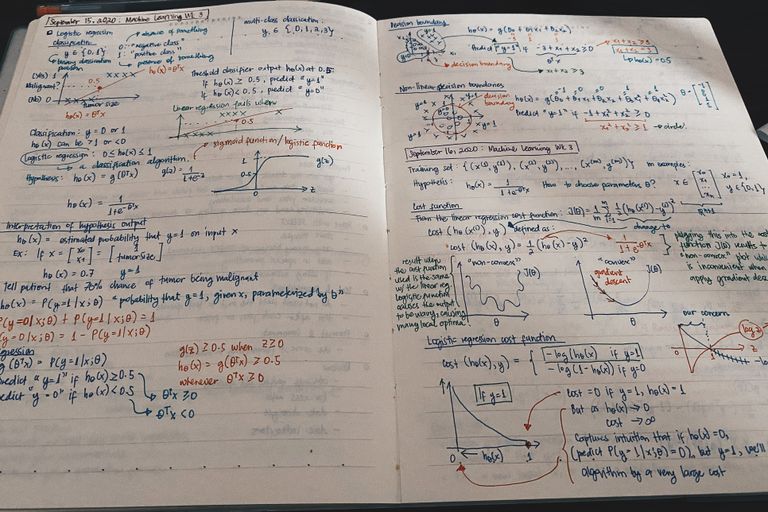 September 15, 2020 : Machine Learning Wk 3
Logistic regression
classification
y ∈ {0,1}
binary classification problem
absence of something
0: "negative class"
1: "positive class"
presence of something
multi-class classification:
y ∈ {0,1,2,3}
(Yes) 1
Malignant?
(No) 0
0.5
tumor size
hθ(x) = θᵀx
Threshold classifier output hθ(x) at 0.5:
If hθ(x) ≥ 0.5, predict "y=1"
If hθ(x) < 0.5, predict "y=0"
Linear regression fails when
0.5
Classification: y = 0 or 1
hθ(x) can be >1 or <0
Logistic regression: 0 ≤ hθ(x) ≤ 1
a classification algorithm
sigmoid function/logistic function
Hypothesis: hθ(x) = g(θᵀx)
g(z) = 1/(1+e⁻ᶻ)
1
0.5
g(z)
z
hθ(x) = 1/(1+e^(-θᵀx))
Interpretation of hypothesis output
hθ(x) = estimated probability that y=1 on input x
Ex: If x = [x₀ x₁] = [1 tumorsize]
hθ(x) = 0.7
y=1
Tell patient that 70% chance of tumor being malignant
hθ(x) = P(y=1|x;θ) "probability that y=1, given x, parameterized by θ"
P(y=0|x;θ) + P(y=1|x;θ) = 1
P(y=0|x;θ) = 1 - P(y=1|x;θ)
g(θᵀx) = P(y=1|x;θ)
predict "y=1" if hθ(x) ≥ 0.5
θᵀx ≥ 0
predict "y=0" if hθ(x) < 0.5
θᵀx < 0
g(z) ≥ 0.5 when z ≥ 0
hθ(x) = g(θᵀx) ≥ 0.5
whenever θᵀx ≥ 0
Decision boundary
hθ(x) = g(θ₀ + θ₁x₁ + θ₂x₂)
Predict "y=1" if -3 + x₁ + x₂ ≥ 0
x₁ + x₂ ≥ 3
decision boundary
x₁ + x₂ = 3
hθ(x) = 0.5
Non-linear decision boundaries
decision boundary
hθ(x) = g(θ₀ + θ₁x₁ + θ₂x₂ + θ₃x₁² + θ₄x₂²)
Predict "y=1" if -1 + x₁² + x₂² ≥ 0
x₁² + x₂² ≥ 1 → circle!
September 16, 2020 : Machine Learning Wk 3
Training set: {(x⁽¹⁾, y⁽¹⁾), (x⁽²⁾, y⁽²⁾), ..., (x⁽ᵐ⁾, y⁽ᵐ⁾)} m examples
Hypothesis: hθ(x) = 1/(1+e^(-θᵀx))
How to choose parameters θ?
x₀ = 1,
y ∈ {0,1}
Cost function
from the linear regression cost function: J(θ) = 1/m Σ 1/2 (hθ(x⁽ⁱ⁾) - y⁽ⁱ⁾)²
cost (hθ(x), y) defined as:
cost (hθ(x), y) = 1/2 (hθ(x) - y)²
change to
1/(1+e^(-θᵀx))
plugging this into the cost
function J(θ) results to
"non-convex" plot which
is inconvenient when
apply gradient descent
result when
the cost function
used is the same
w/ the linear reg.
Logistic function
causes the output
to be wavy, causing
many local optima.
"non-convex"
J(θ)
θ
"convex"
J(θ)
gradient descent
θ
our concern
Logistic regression cost function
cost (hθ(x), y) = { -log(hθ(x)) if y=1
-log(1-hθ(x)) if y=0
If y=1
0
hθ(x)
1
cost = 0 if y=1, hθ(x) = 1
But as hθ(x) → 0
cost → ∞
Captures intuition that if hθ(x) = 0,
(predict P(y=1|x;θ) = 0), but y=1, we'll
algorithm by a very large cost